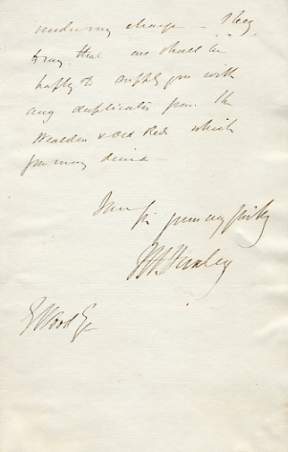 under my charge - I beg
to say that we shall be
happy to supply you with
any duplicates from the
Wealden & Old Red which
you may desire -
I am Sir yours very faithly
T H Huxley
E Wood Esq